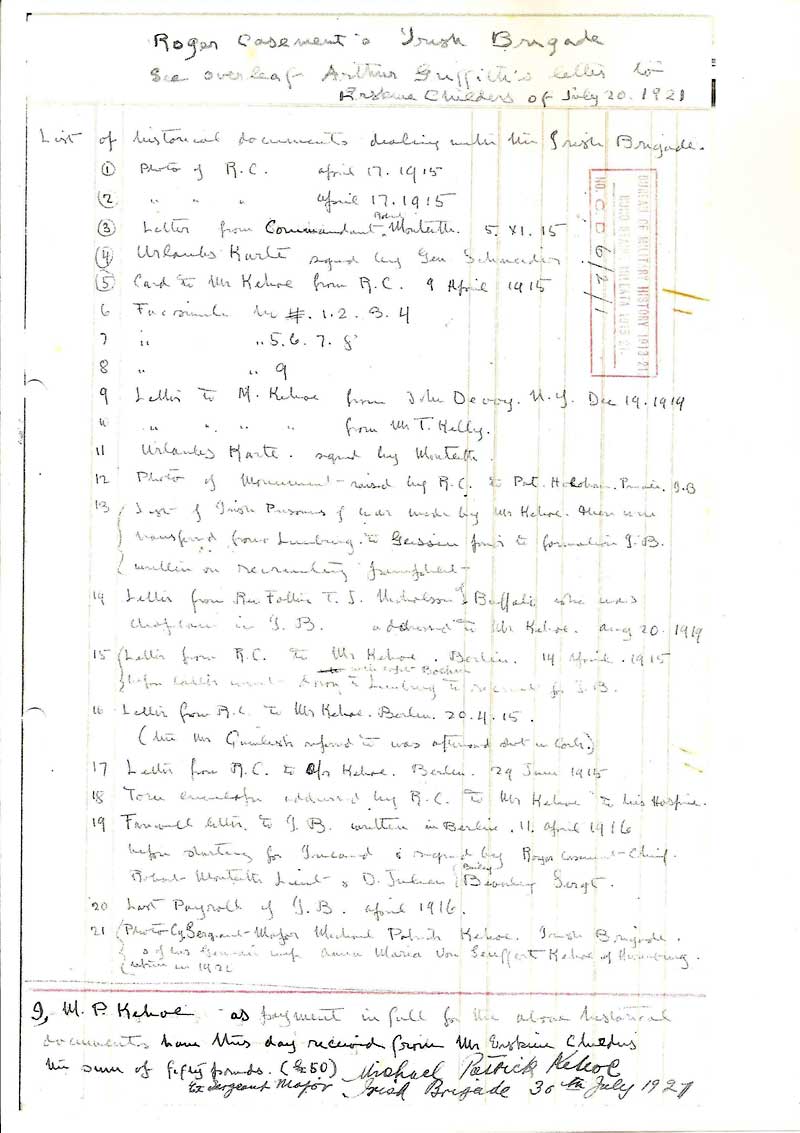 Roger Casement's Irish Brigade
See overleaf Arthur Griffith's letter to
Erskine Childers of July 20. 1921
List of historical documents dealing with the Irish Brigade.
① Photo of R.C. april 17. 1915
② " " " april 17. 1915
③ Letter from Commandant Monteith. 5. XI. 15
④ Urlaubs Karte signed by Gen Schneider
⑤ Card to Mr Kehoe from R.C. 9 April 1915
6 Facsimile No #. 1. 2. 3. 4
7 " " 5. 6. 7. 8
8 " " 9
9 Letter to M. Kehoe from John Devoy. N.Y. Dec 19. 1919
" " " " from Mr T. Kelly.
11 Urlaubs Karte. signed by Monteith.
12 Photo of Monument raised by R.C. to Pat. Holohan. I.B
13 List of Irish Prisoners of war made by Mr Kehoe. when were
transferred from Limburg to prior to formation I.B.
written on recruiting pamphlet
14 Letter from Rev Father T. J. Nicholson of Buffalo who was
chaplain in I.B. addressed to Mr Kehoe. aug 20. 1919
15 Letter from R.C. to Mr Kehoe. Berlin. 14 April. 1915
before latter went to Limburg to recruit for I.B.
16 Letter from R.C. to Mr Kehoe. Berlin. 20. 4. 15.
(the Mr referred to was afterward shot in Cork.)
17 Letter from R.C. to Kehoe. Berlin. 29 June 1915
18 Torn envelope addressed by R.C. to Mr Kehoe to his Hospice.
19 Farewell letter to I.B. written in Berlin. 11. april 1916
before starting for Ireland & signed by Roger Casement - Chief.
Robert Monteith Lieut & D. Julian (Bailey) Beverley Sergt.
20 Last Payroll of I.B. april 1916.
21 Photo Sergeant-Major Michael Patrick Kehoe. Irish Brigade.
& of his German wife Anna Maria Von Seuffert Kehoe of
taken in 1922
BUREAU OF MILITARY HISTORY 1913-21
BURO STAIRE MILEATA 1913-21
NO. C D 6/2/1
I, M. P. Kehoe as payment in full for the above historical
documents have this day received from Mr Erskine Childers
the sum of fifty pounds. (£50) Michael Patrick Kehoe
Ex Sergeant Major Irish Brigade 30th July 1921